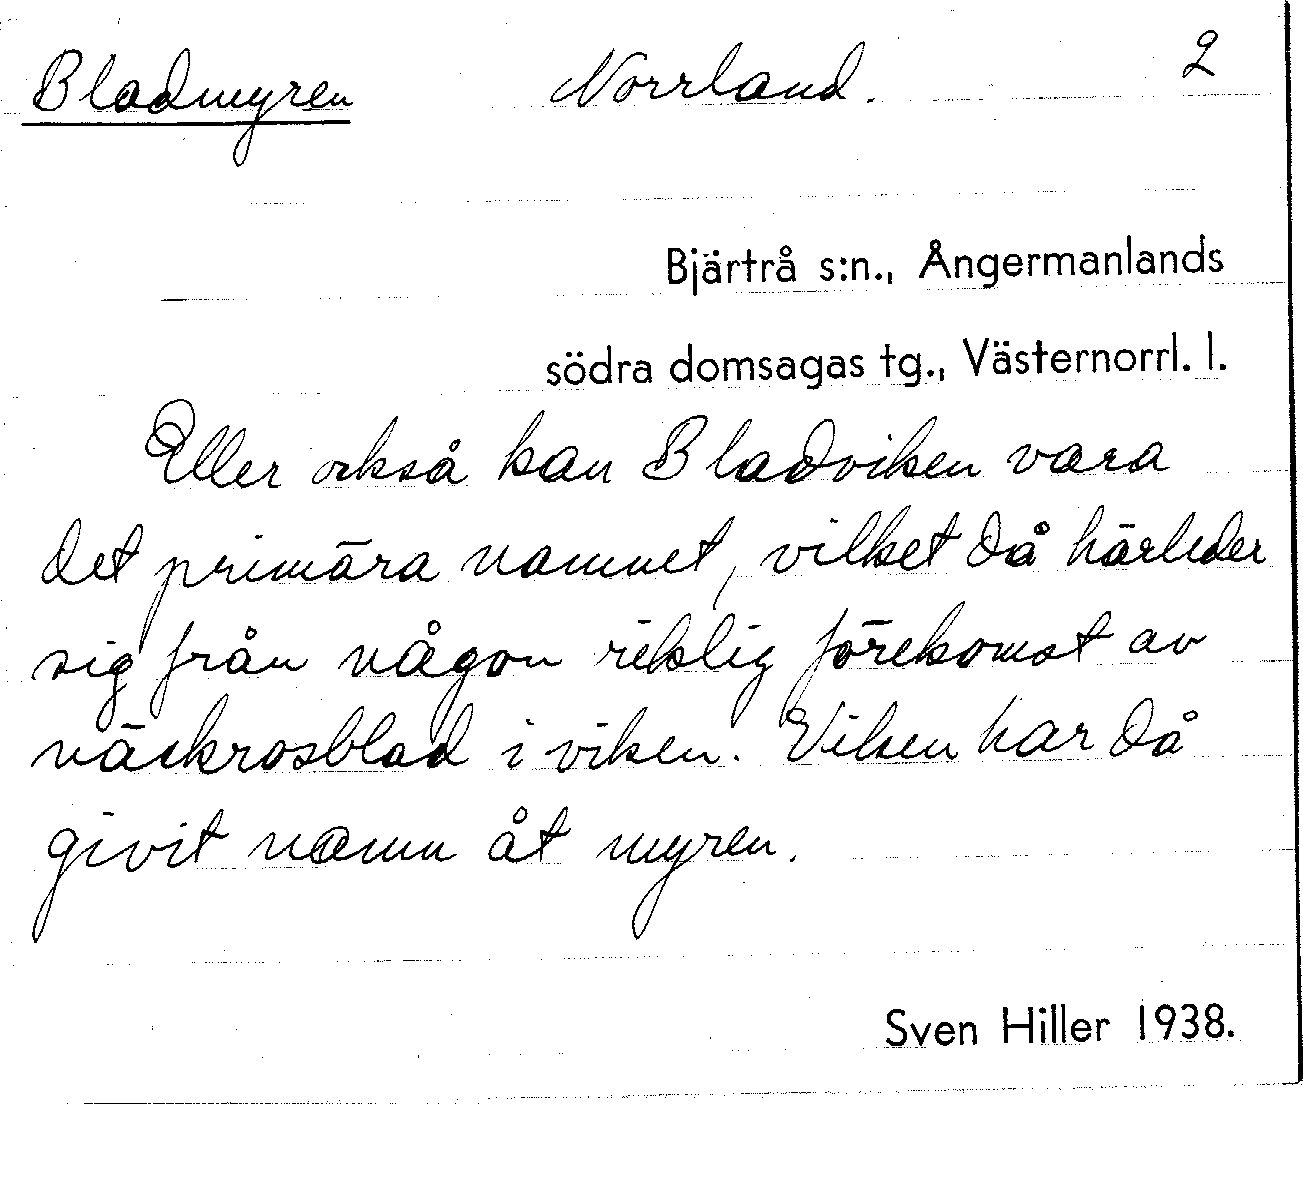 Bladmyren Norrland. 2
Bjärtrå s:n., Ångermanlands
södra domsagas tg., Västernorrl. l.
Eller också kan Bladviken vara
det primära namnet, vilket då härleder
sig från någon riklig förekomst av
näckrosblad i viken. Viken har då
givit namn åt myren.
Sven Hiller 1938.